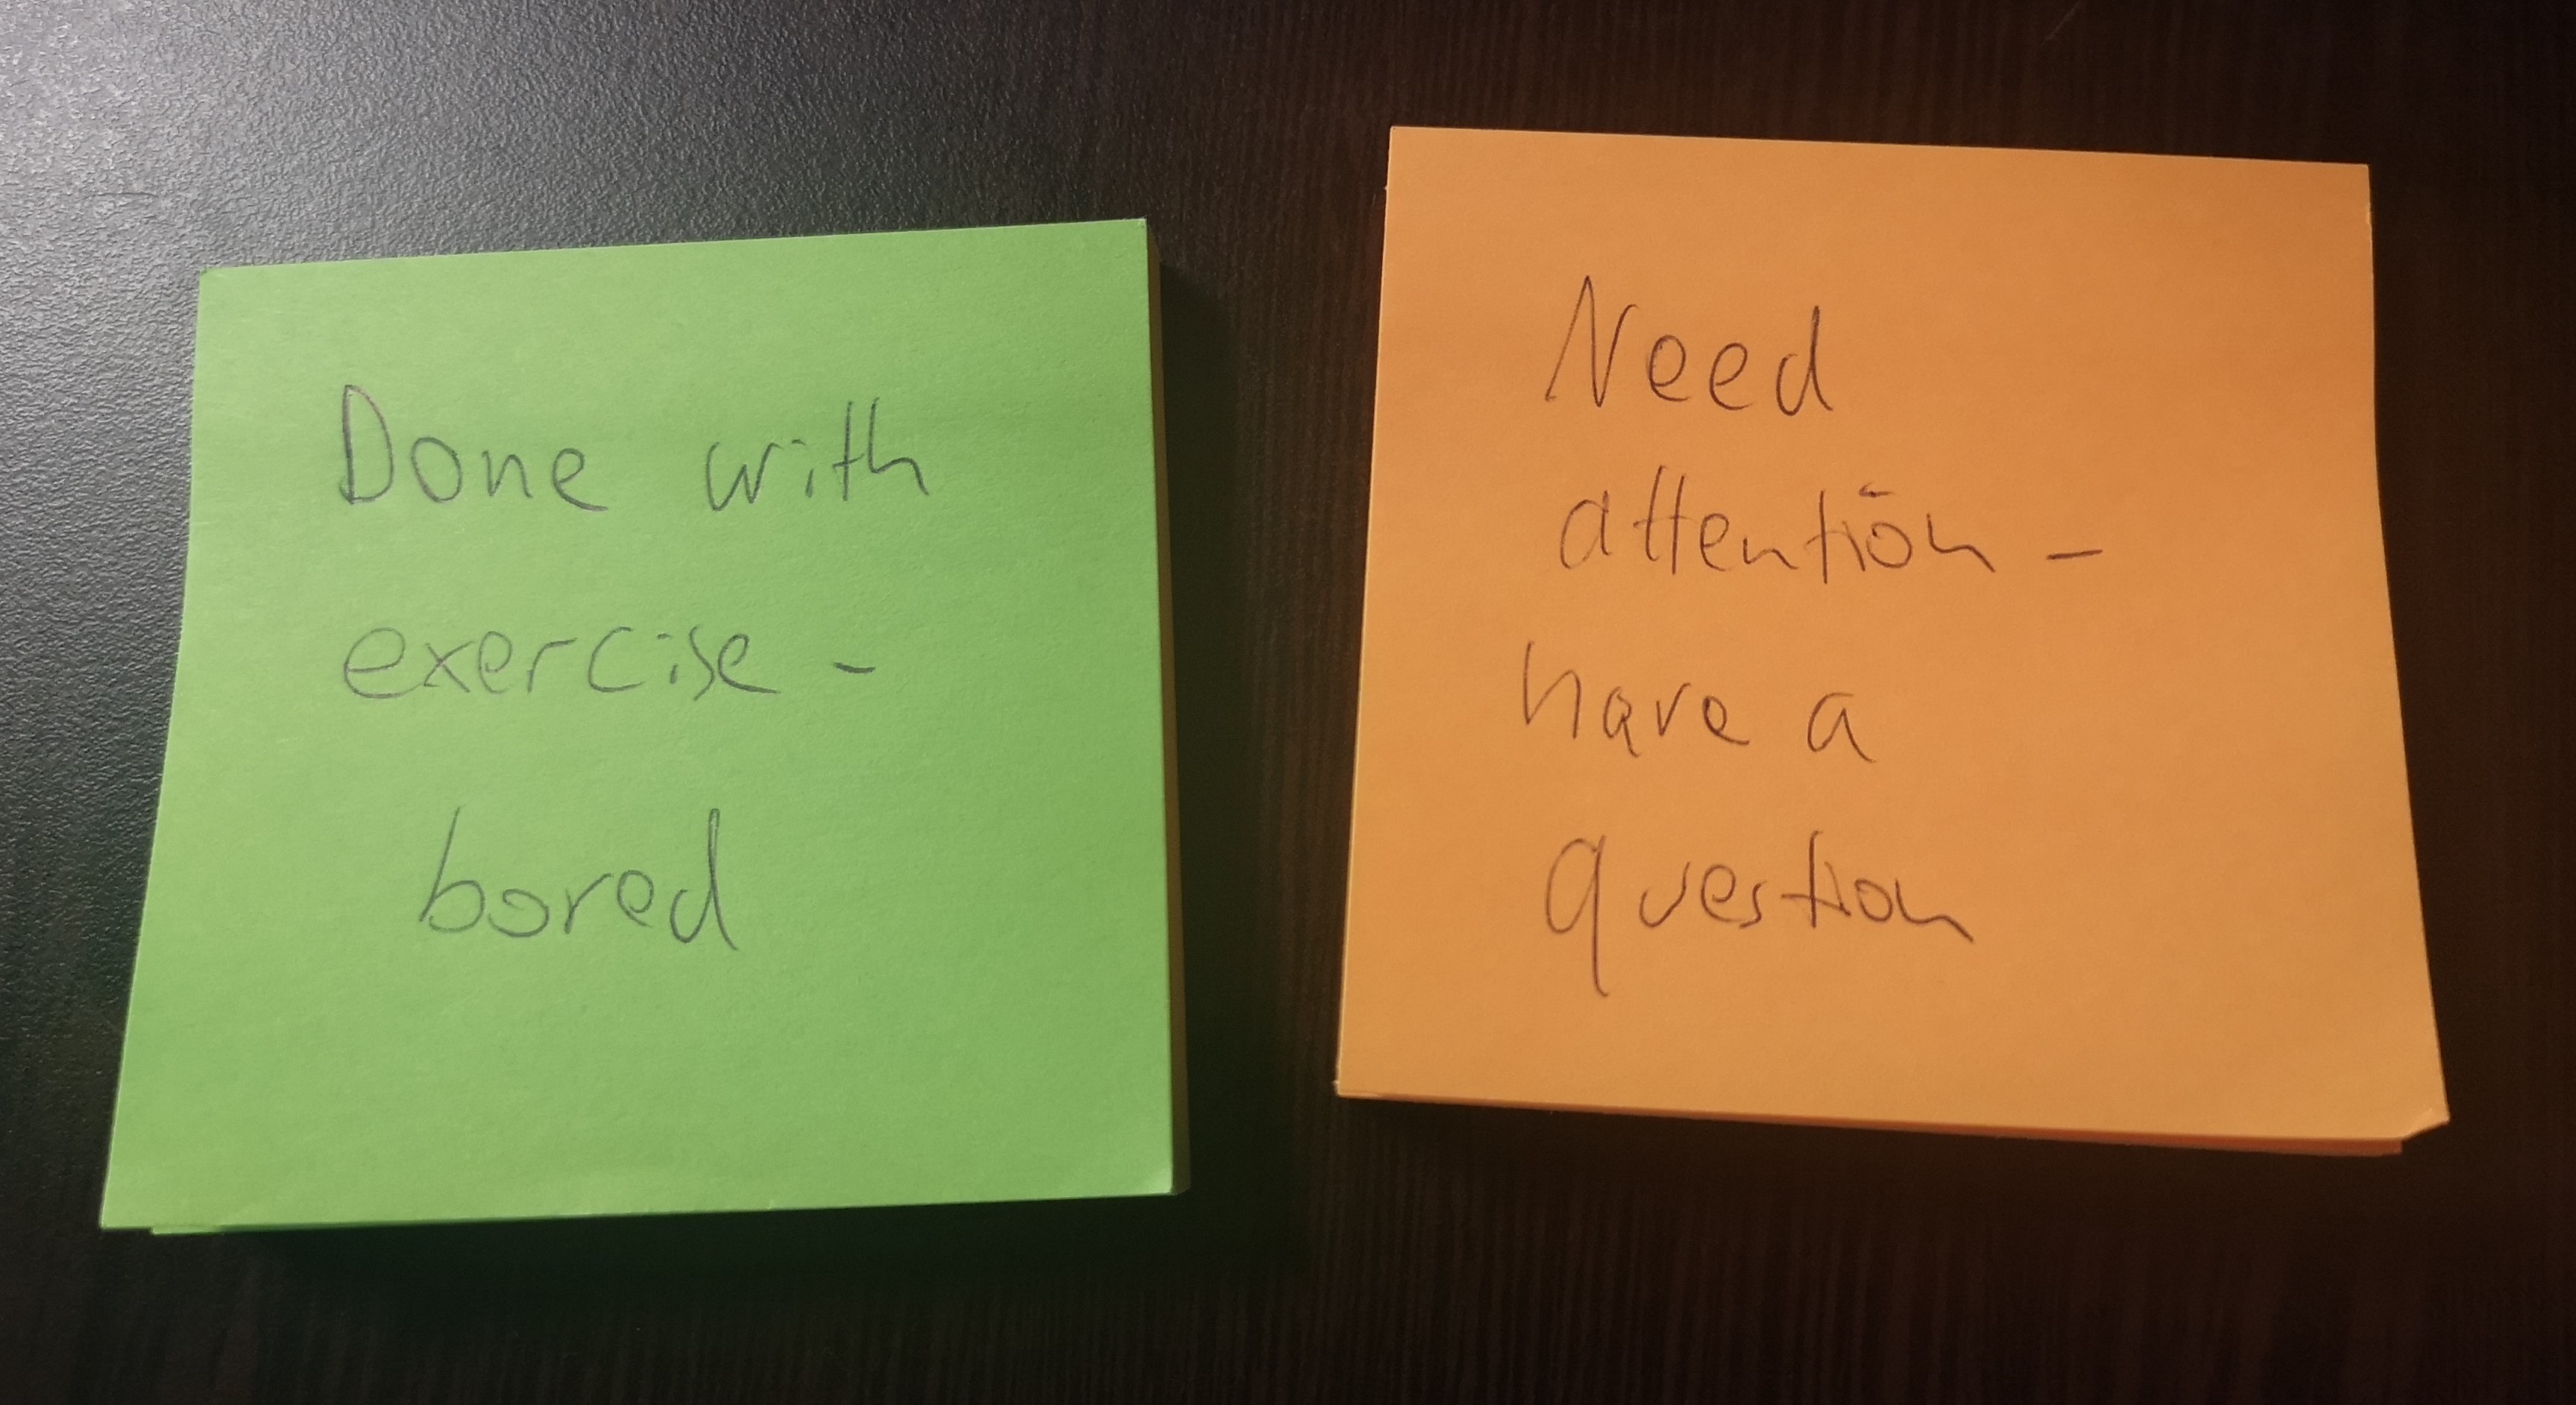 Done with
exercise -
bored
Need
attention -
have a
question